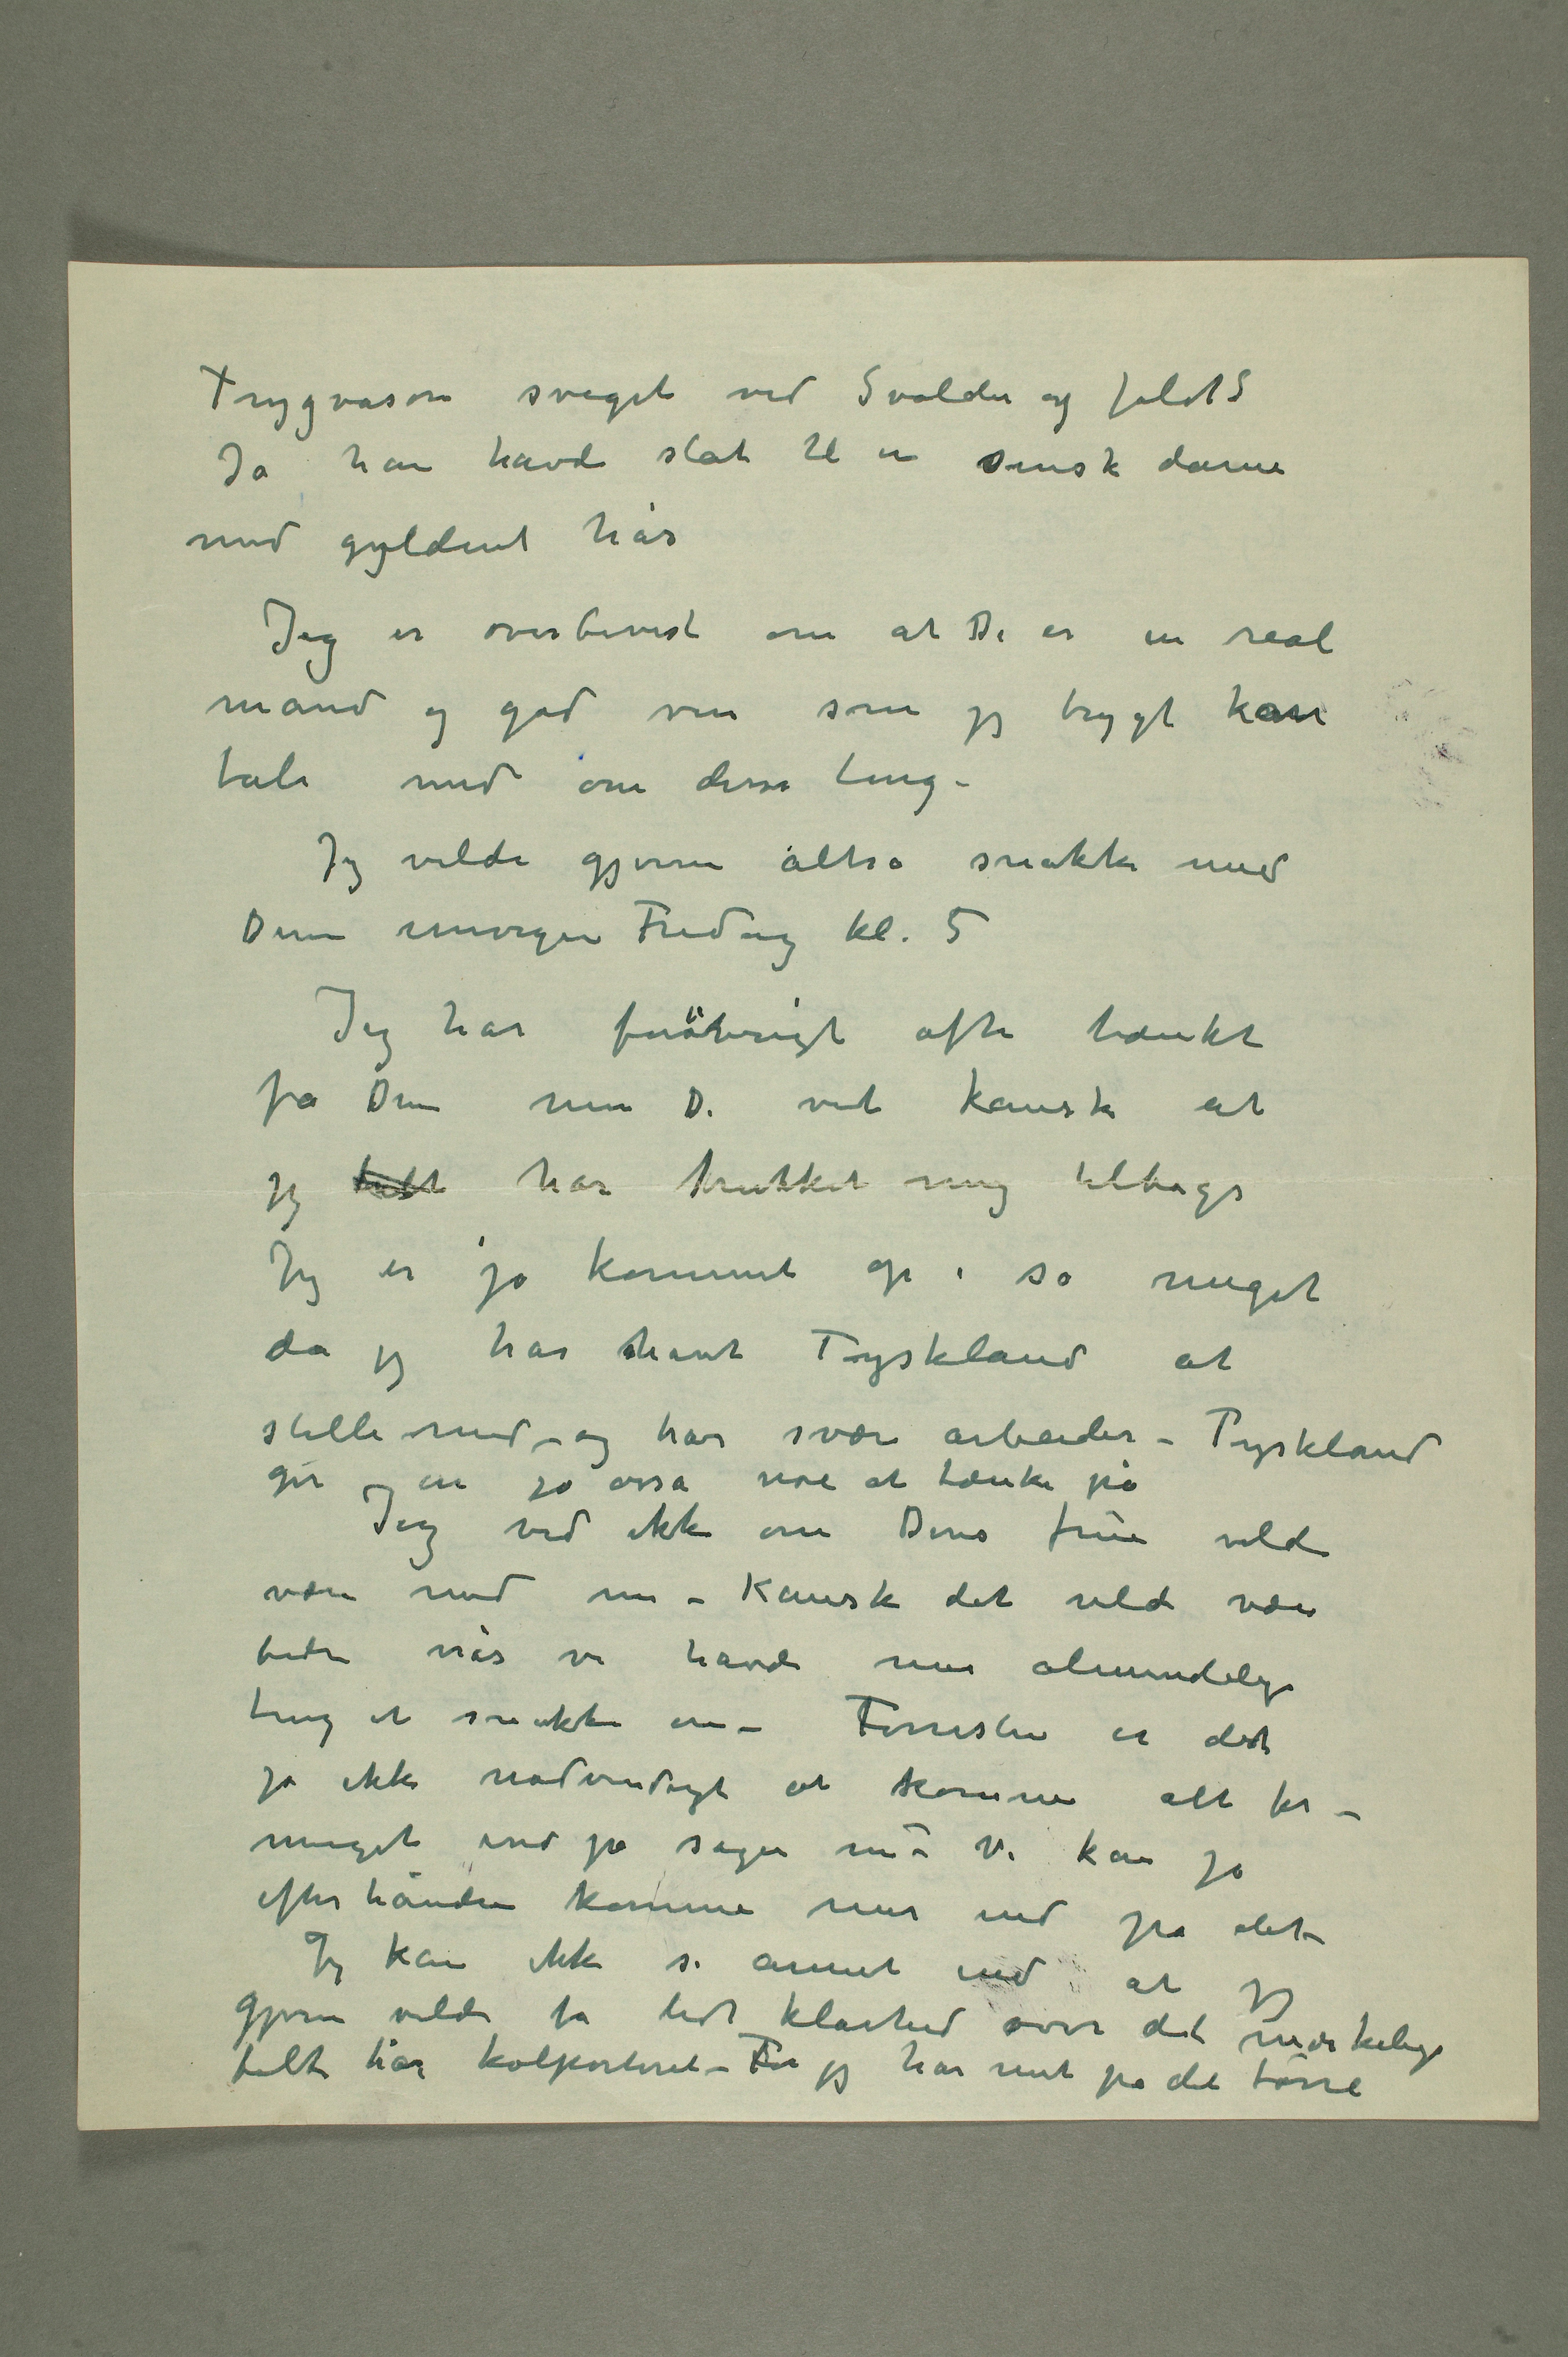 Trygvason sveget ved Svolder og faldt?
Ja han havde slåt til en svensk dame
med gyldent hår
Jeg er overbevist om at De er en real
mand og god ven som jeg trygt kan
tale med om disse ting –
Jeg vilde gjerne altså snakke med
Dem imorgen Fredag kl. 5
Jeg har forövrigt ofte tænkt
på Dem men De vet kanske at
jeg har trukket mig tilbage
Jeg er jo kommet op i så meget
da jeg har havt Tyskland at
stelle med – og har svære arbeider – Tyskland
gir en jo osså noe at tænke på
Jeg ved ikke om Deres frue vilde
være med nu – Kanske det vilde være
bedre når vi havde mer almindelige
ting at snakke om – Forresten er det
jo ikke nødvendigt at komme alt for –
meget ind på sagen nu – Vi kan jo
efterhånden komme mer ind på det –
Jeg kan ikke se annet end at jeg
gjerne vilde få lidt klarhed over det mærkelige
felt har kolporteret – For jeg har mit på det tørre